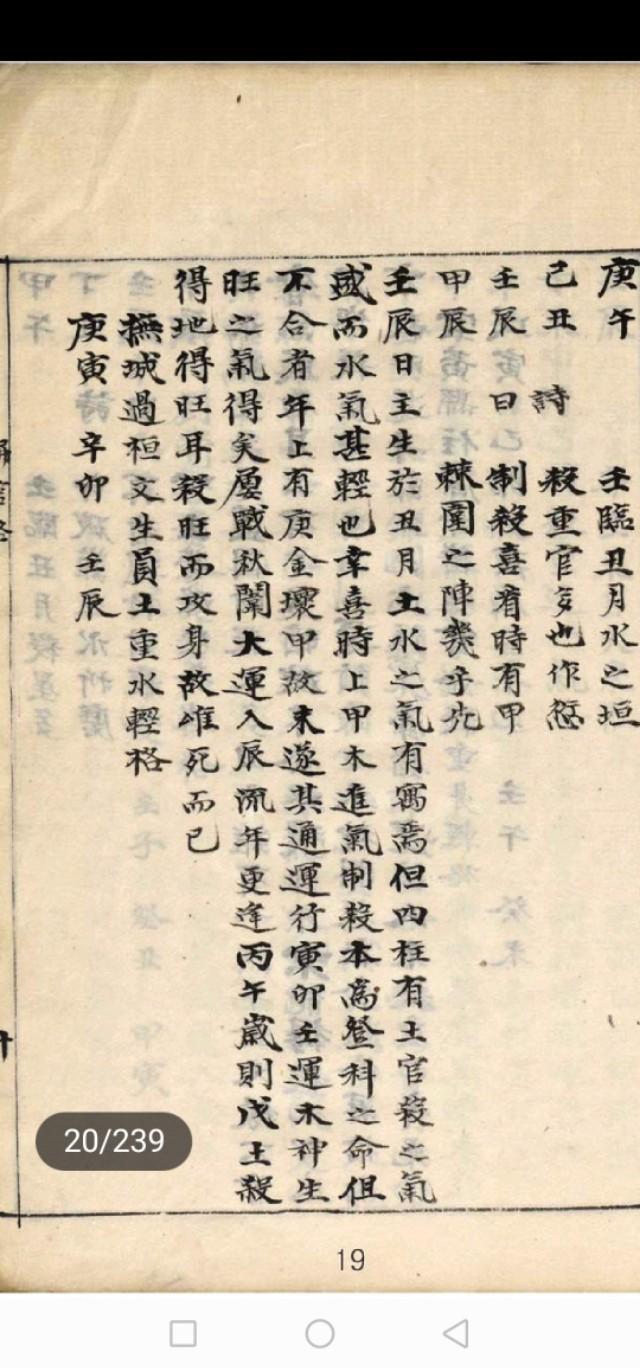 庚午 壬臨丑月水之垣
己丑 詩 殺重官多也作愆
壬辰日 制殺喜看時有甲
甲辰 棘圍之陣幾乎先
壬辰日主生於丑月土水之氣有寓焉但四柱有土官殺之氣
盛而水氣甚輕也幸喜時上甲木進氣制殺本為登科之命但
不合者年上有庚金壞甲故未遂其通運行寅卯壬運木神生
旺之氣得矣屢戰秋闈大運入辰流年更逢丙午歲則戊土殺
得地得旺耳殺旺而攻身故唯死而已
撫城過桓文生員土重水輕格
庚寅 辛卯 壬辰
20/239
19